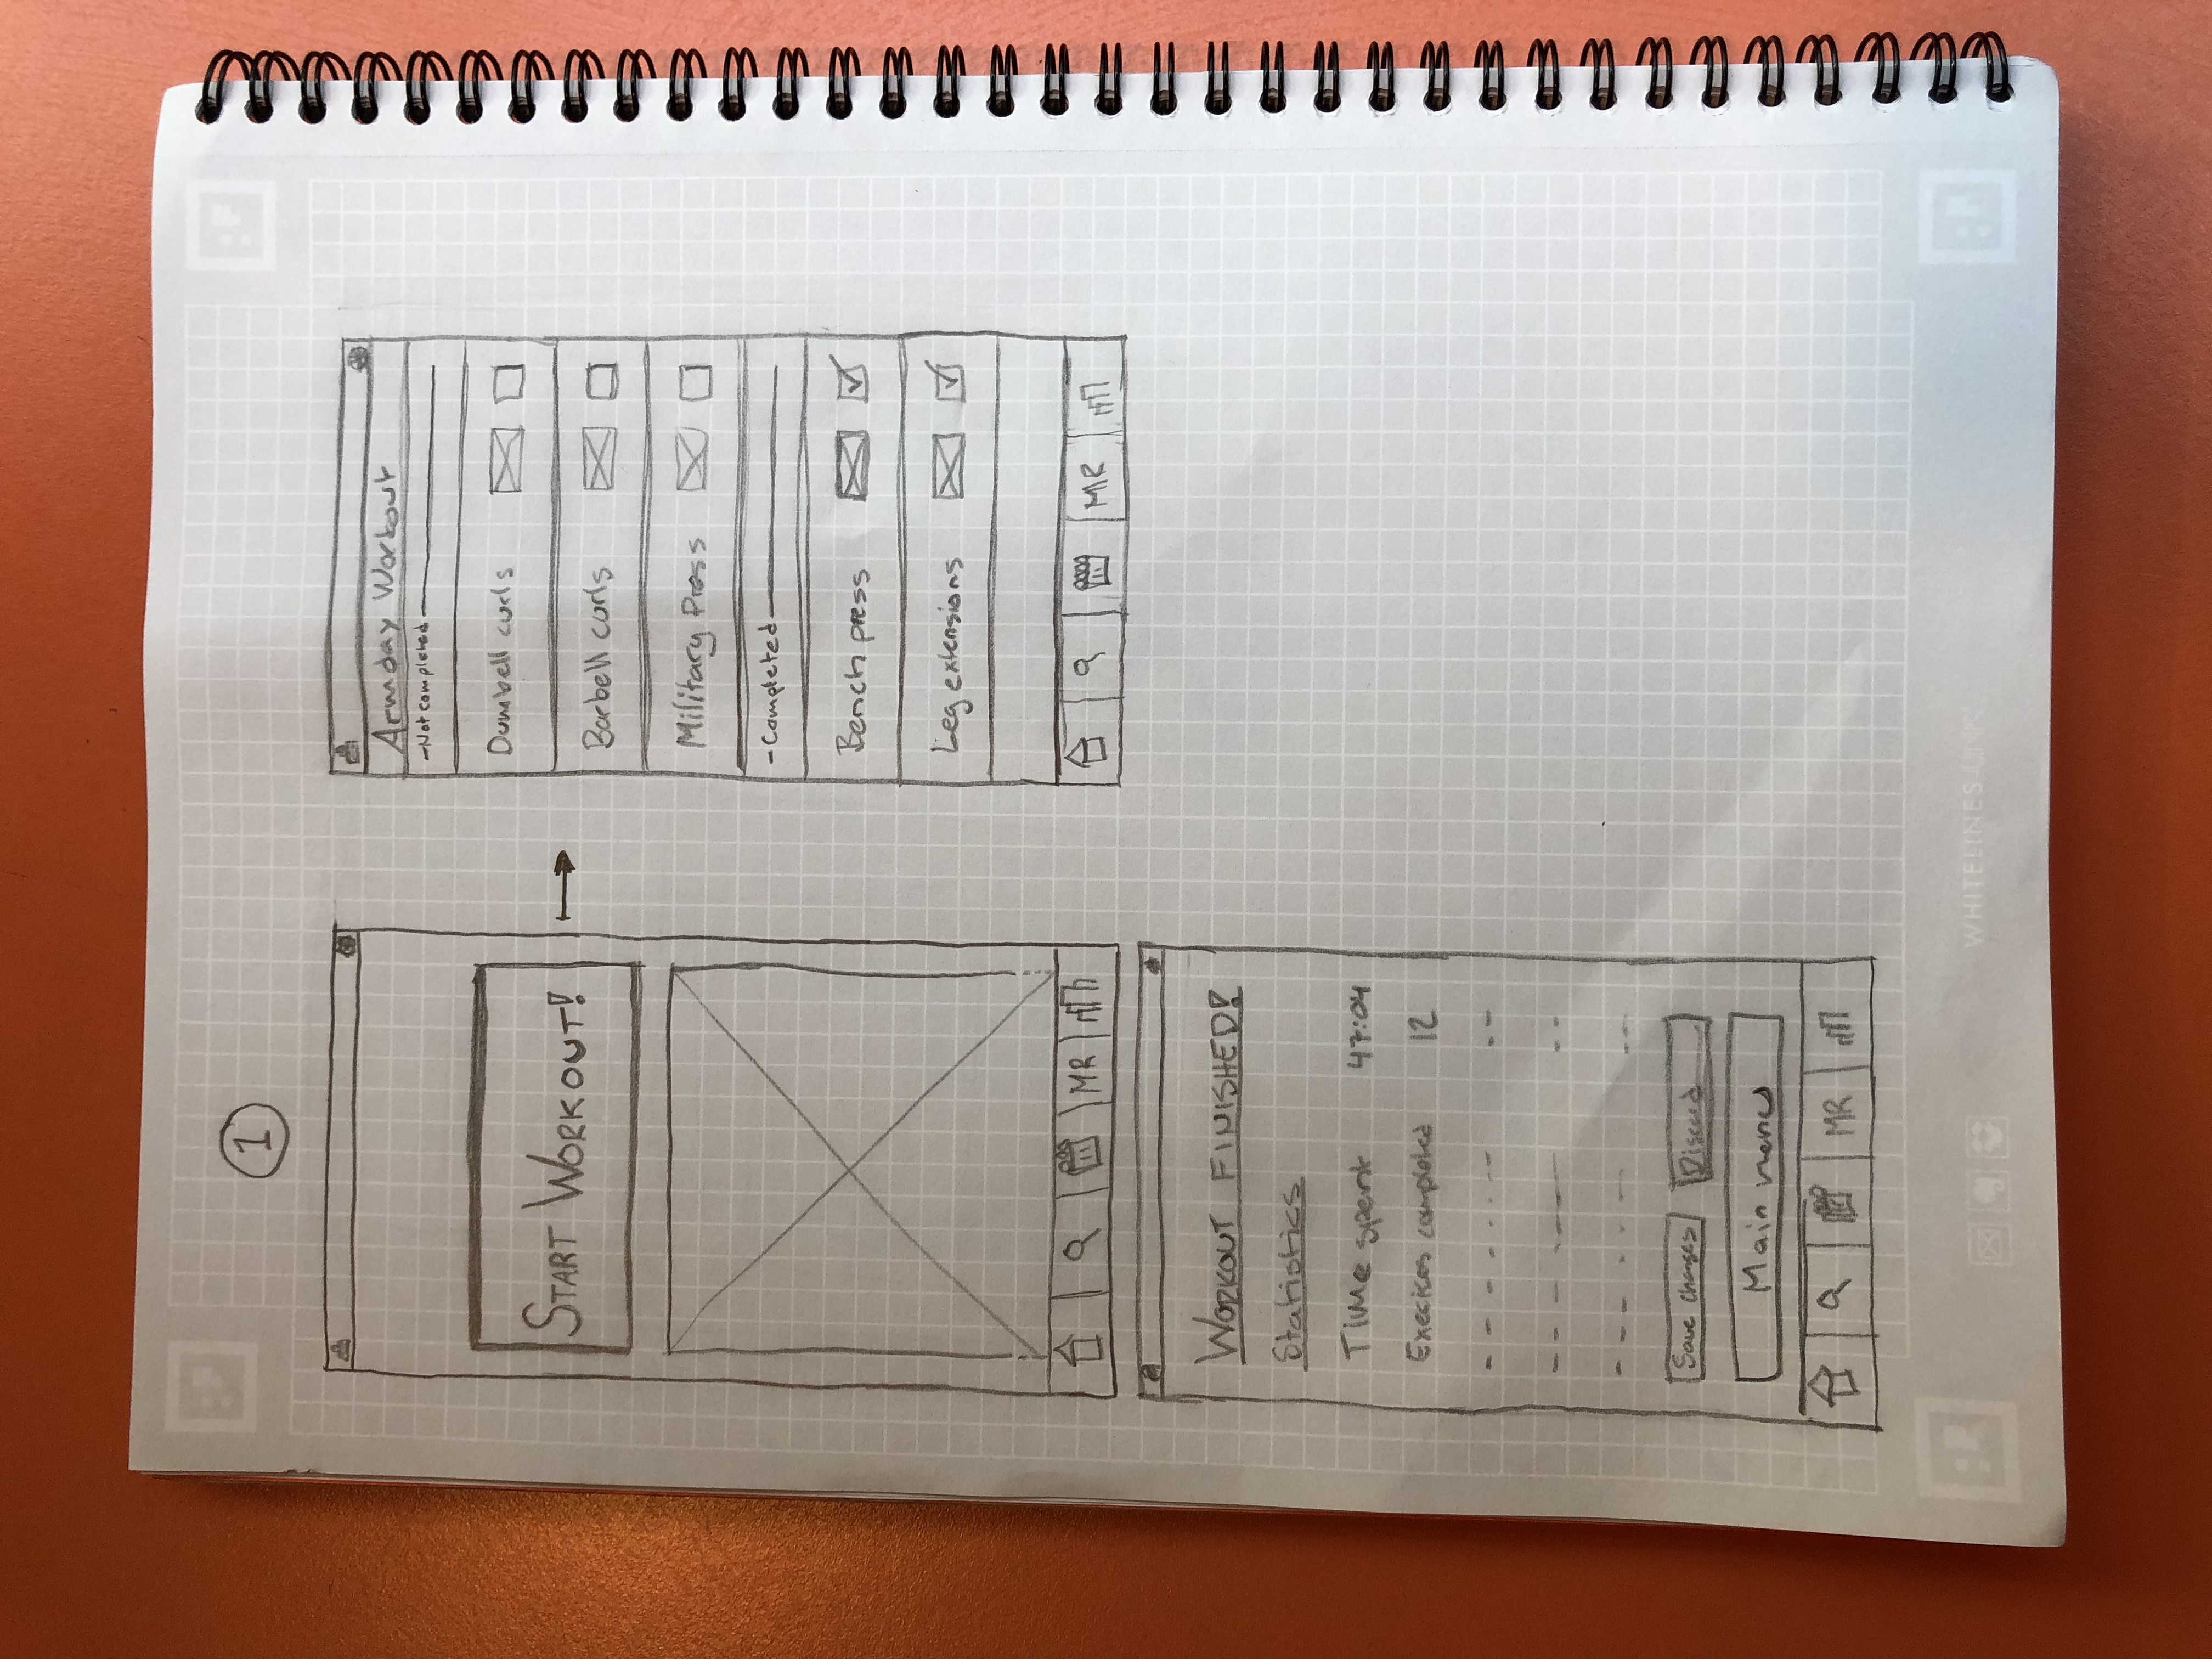 1
START WORKOUT!
MR
Armday Workout
-Not completed
Dumbell curls
Barbell curls
Military Press
-Completed
Bench press
Leg extensions
MR
WORKOUT FINISHED!
Statistics
Time spent 47:04
Execises completed 12
Save changes Discard
Main menu
MR
WHITELINES LINK